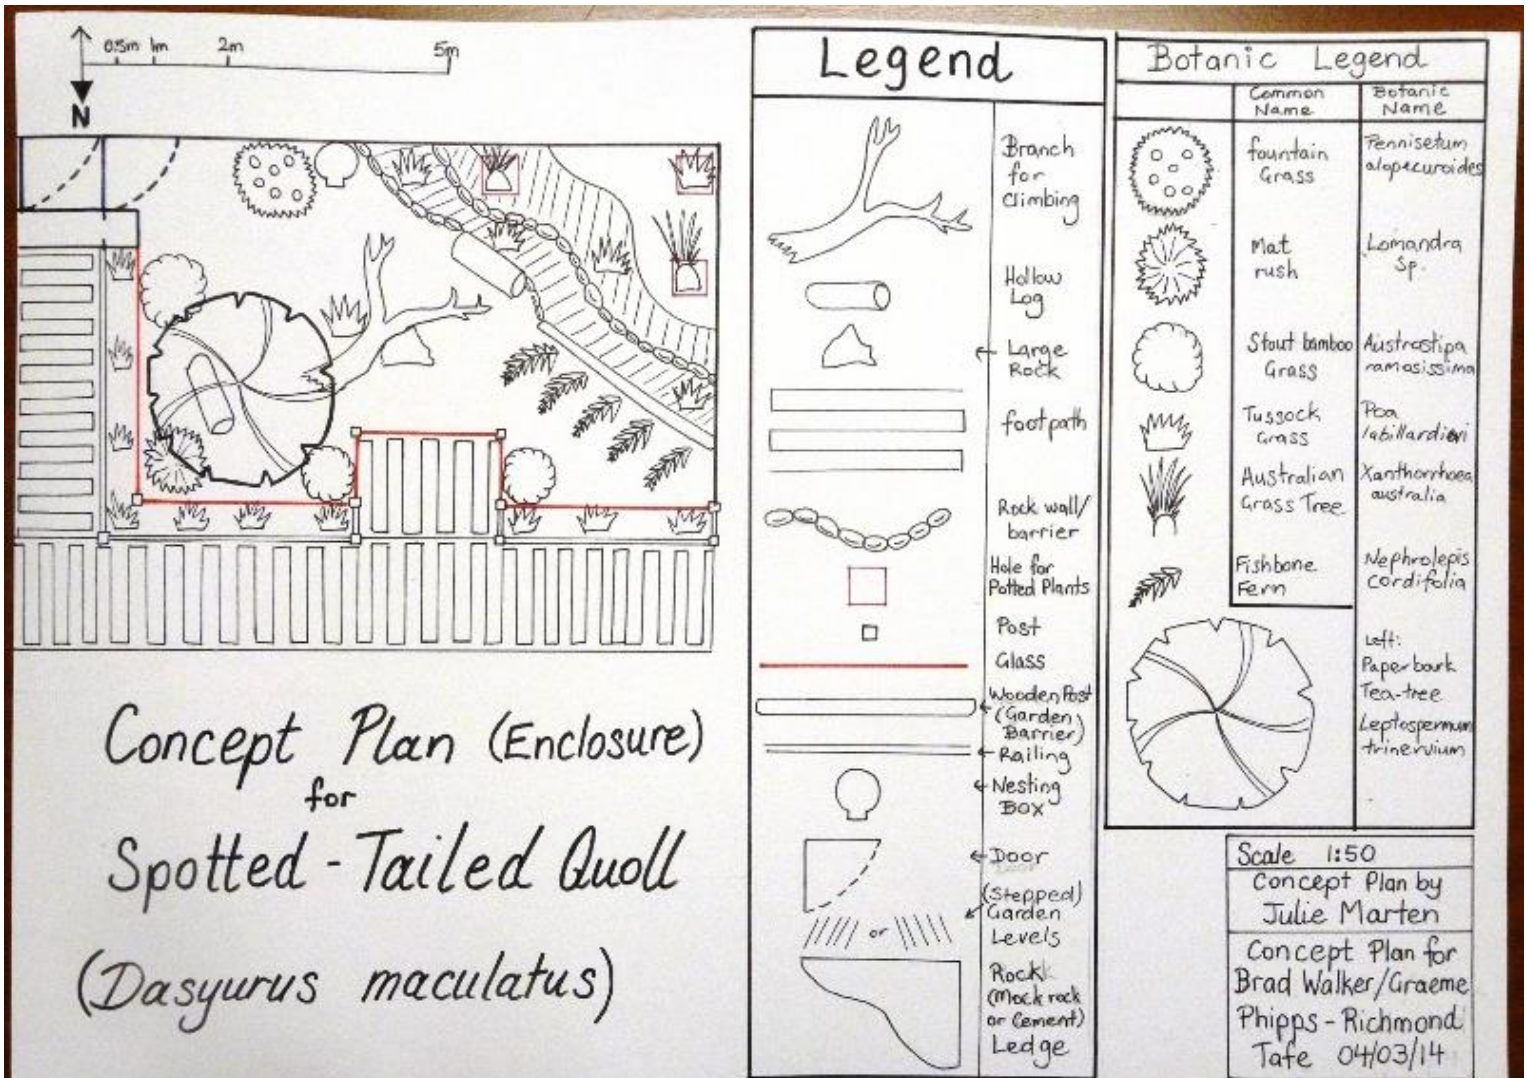 0.5m 1m 2m 5m
N
Concept Plan (Enclosure)
for
Spotted-Tailed Quoll
(Dasyurus maculatus)
Legend
Branch
for
Climbing
Hollow
Log
Large
Rock
footpath
Rock wall/
barrier
Hole for
Potted Plants
Post
Glass
Wooden Post
(Garden
Barrier)
Railing
Nesting
Box
Door
(Stepped)
Garden
Levels
or
Rock
(Mock rock
or Cement)
Ledge
Botanic Legend
Common
Name
Botanic
Name
fountain
Grass
Pennisetum
alopecuroides
Mat
rush
Lomandra
Sp.
Stout bamboo
Grass
Austrostipa
ramosissima
Tussock
Grass
Poa
labillardieri
Australian
Grass Tree
Xanthorrhoea
australia
Fishbone
Fern
Nephrolepis
cordifolia
Left:
Paperbark
Tea-tree
Leptospermum
trinervium
Scale 1:50
Concept Plan by
Julie Marten
Concept Plan for
Brad Walker/Graeme
Phipps - Richmond
Tafe 04/03/14